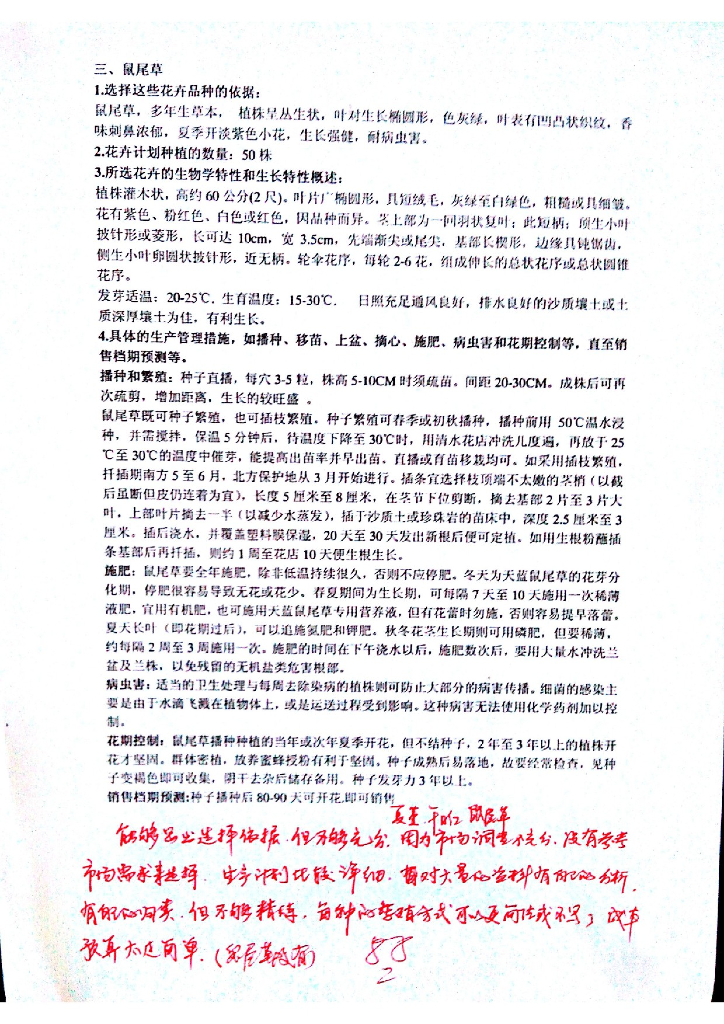 三、鼠尾草
1.选择这些花卉品种的依据：
鼠尾草，多年生草本， 植株呈丛生状，叶对生长椭圆形，色灰绿，叶表有凹凸状织纹，香
味刺鼻浓郁，夏季开淡紫色小花，生长强健，耐病虫害。
2.花卉计划种植的数量：50 株
3.所选花卉的生物学特性和生长特性概述：
植株灌木状，高约 60 公分(2 尺)。叶片广椭圆形，具短绒毛，灰绿至白绿色，粗糙或具细皱。
花有紫色、粉红色、白色或红色，因品种而异。茎上部为一回羽状复叶；此短柄；顶生小叶
披针形或菱形，长可达 10cm，宽 3.5cm，先端渐尖或尾尖，基部长楔形，边缘具钝锯齿，
侧生小叶卵圆状披针形，近无柄。轮伞花序，每轮 2-6 花，组成伸长的总状花序或总状圆锥
花序。
发芽适温：20-25℃，生育温度：15-30℃. 日照充足通风良好，排水良好的沙质壤土或土
质深厚壤土为佳，有利生长。
4.具体的生产管理措施，如播种、移苗、上盆、摘心、施肥、病虫害和花期控制等，直至销
售档期预测等。
播种和繁殖：种子直播，每穴 3-5 粒，株高 5-10CM 时须疏苗。间距 20-30CM。成株后可再
次疏剪，增加距离，生长的较旺盛 。
鼠尾草既可种子繁殖，也可插枝繁殖。种子繁殖可春季或初秋播种，播种前用 50℃温水浸
种，并需搅拌，保温 5 分钟后，待温度下降至 30℃时，用清水花店冲洗几度遍，再放于 25
℃至 30℃的温度中催芽，能提高出苗率并早出苗。直播或育苗移栽均可。如采用插枝繁殖，
扦插期南方 5 至 6 月，北方保护地从 3 月开始进行。插条宜选择枝顶端不太嫩的茎梢（以截
后虽断但皮仍连着为宜），长度 5 厘米至 8 厘米，在茎节下位剪断，摘去基部 2 片至 3 片大
叶，上部叶片摘去一半（以减少水蒸发），插于沙质土或珍珠岩的苗床中，深度 2.5 厘米至 3
厘米。插后浇水，并覆盖塑料膜保湿，20 天至 30 天发出新根后便可定植。如用生根粉蘸插
条基部后再扦插，则约 1 周至花店 10 天便生根生长。
施肥：鼠尾草要全年施肥，除非低温持续很久，否则不应停肥。冬天为天蓝鼠尾草的花芽分
化期，停肥很容易导致无花或花少。春夏期间为生长期，可每隔 7 天至 10 天施用一次稀薄
液肥，宜用有机肥，也可施用天蓝鼠尾草专用营养液，但有花蕾时勿施，否则容易提早落蕾。
夏天长叶（即花期过后），可以追施氮肥和钾肥。秋冬花茎生长期则可用磷肥，但要稀薄，
约每隔 2 周至 3 周施用一次。施肥的时间在下午浇水以后，施肥数次后，要用大量水冲洗兰
盆及兰株，以免残留的无机盐类危害根部。
病虫害：适当的卫生处理与每周去除染病的植株则可防止大部分的病害传播。细菌的感染主
要是由于水滴飞溅在植物体上，或是运送过程受到影响。这种病害无法使用化学药剂加以控
制。
花期控制：鼠尾草播种种植的当年或次年夏季开花，但不结种子，2 年至 3 年以上的植株开
花才坚固。群体密植，放养蜜蜂授粉有利于坚固。种子成熟后易落地，故要经常检查，见种
子变褐色即可收集，阴干去杂后储存备用。种子发芽力 3 年以上。
销售档期预测:种子播种后 80-90 天可开花,即可销售
夏堇 千日红 鼠尾草
能够写出选择依据，但不够充分，因为市场调查不充分，没有参考
市场需求来选择. 生产计划比较详细. 且对大量的资料有自己的分析，
有自己的归类. 但不够精练，每种的繁殖方式可以更简洁或不写；成本
预算太过简单.（鼠尾草没有） 88